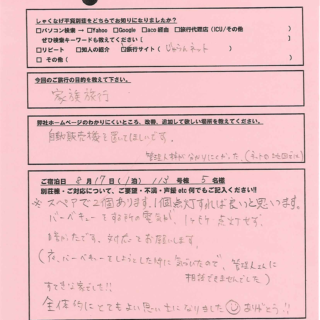 しゃくなげ平貸別荘をどちらでお知りになりましたか?
□パソコン検索 → □Yahoo □Google □aco 経由 □旅行代理店 (ICU/その他 )
ぜひ検索キーワードも教えてください( )
□リピート □知人の紹介 □旅行サイト( じゃらんネット )
□その他( )
今回のご旅行の目的を教えて下さい。
家族旅行
弊社ホームページのわかりにくいところ、改善、追加して欲しい情報を教えてください。
自動販売機を置いてほしいです。
管理人棟が分かりにくかった
ご宿泊日 8月17日(1泊) 113号棟 5名様
別荘様・ご対応について、ご要望・不満・声援 etc 何でもご記入ください!!
※スペアで2個あります。1個点灯すれば良いと思います。
バーベキューをする所の電気が、1ヶ所点灯せず、
暗かったです。対応をお願いします。
(夜、バーベキューをしようとした時に気づいたので、管理人さんに
相談できませんでした)
すてきな家でした!!
全体的にとてもよい思い出になりました ありがとう!!